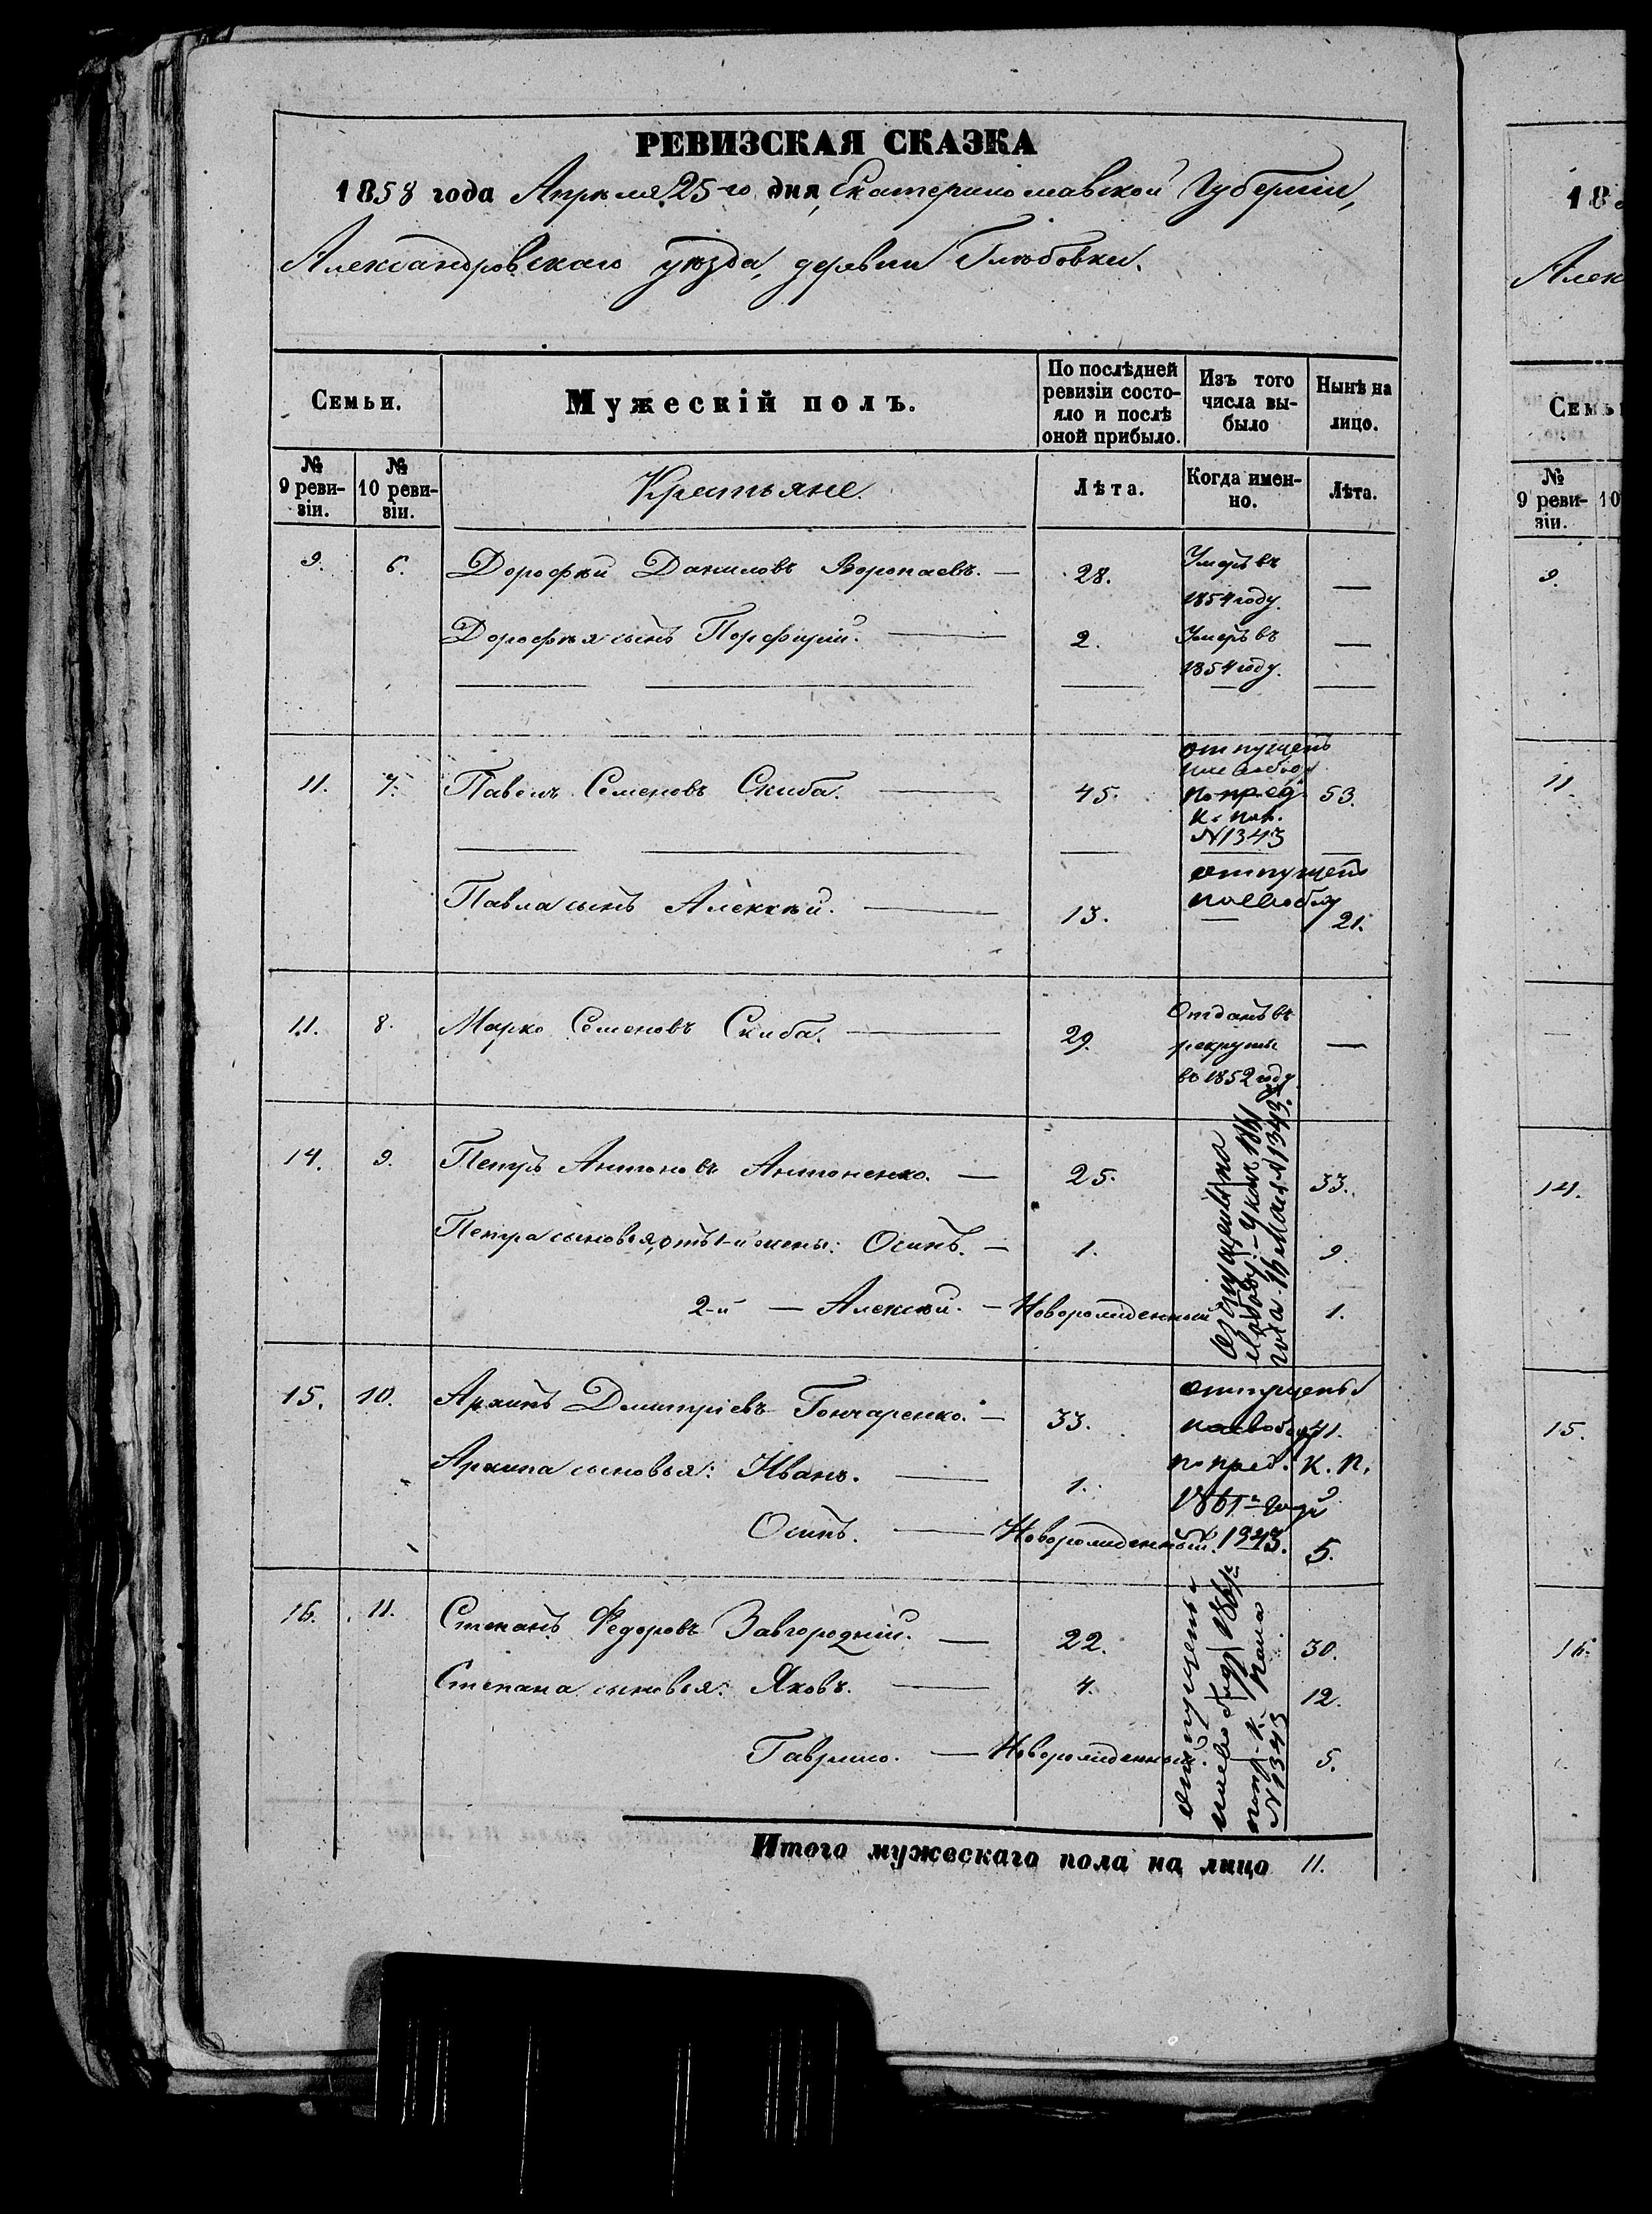 РЕВИЗСКАЯ СКАЗКА
1858 года Апрѣля 25-го дня, Екатеринославской Губерніи,
Александровскаго уѣзда, деревни Глѣбовки.
Семьи. Мужескій полъ. По послѣдней ревизіи состояло и послѣ оной прибыло. Изъ того числа выбыло Нынѣ на лицо.
№ 9 ревизіи. № 10 ревизіи. Крестьяне. Лѣта. Когда именно. Лѣта.
9. 6. Дорофѣй Даниловъ Воропаевъ. — 28. Умеръ въ 1854 году. —
Дорофѣя сынъ Порфирій. — 2. Умеръ въ 1854 году. —
11. 7. Павелъ Семеновъ Скиба. — 45. отпущенъ на свободу по пред. К. Пал. №1343 53.
Павла сынъ Алексѣй. — 13. отпущенъ на свободу 21.
11. 8. Марко Семеновъ Скиба. — 29. Отданъ въ рекруты въ 1852 году. —
14. 9. Петръ Антоновъ Антоненко. — 25. 33.
Петра сыновья, отъ 1-й жены: Осипъ. — 1. 9.
2-й — Алексѣй. — Новорожденный 1.
на свободу Указ 1861 года 16 Мая №1343.
15. 10. Архипъ Дмитріевъ Гончаренко. — 33. отпущены на свободу 41.
Архипа сыновья: Иванъ. — 1. по пред. К. П. 1861 года 9
Осипъ. — Новорожденный. №1343. 5.
16. 11. Степанъ Федоровъ Завгородній. — 22. 30.
Степана сыновья: Яковъ. — 4. 12.
Гаврило. — Новорожденный. 5.
отпущены
на свободу 1861
№1343
Итого мужескаго пола на лицо 11.
18
Алек
Семь
№ 9 ревизіи. 10
9.
11.
14.
15.
16.